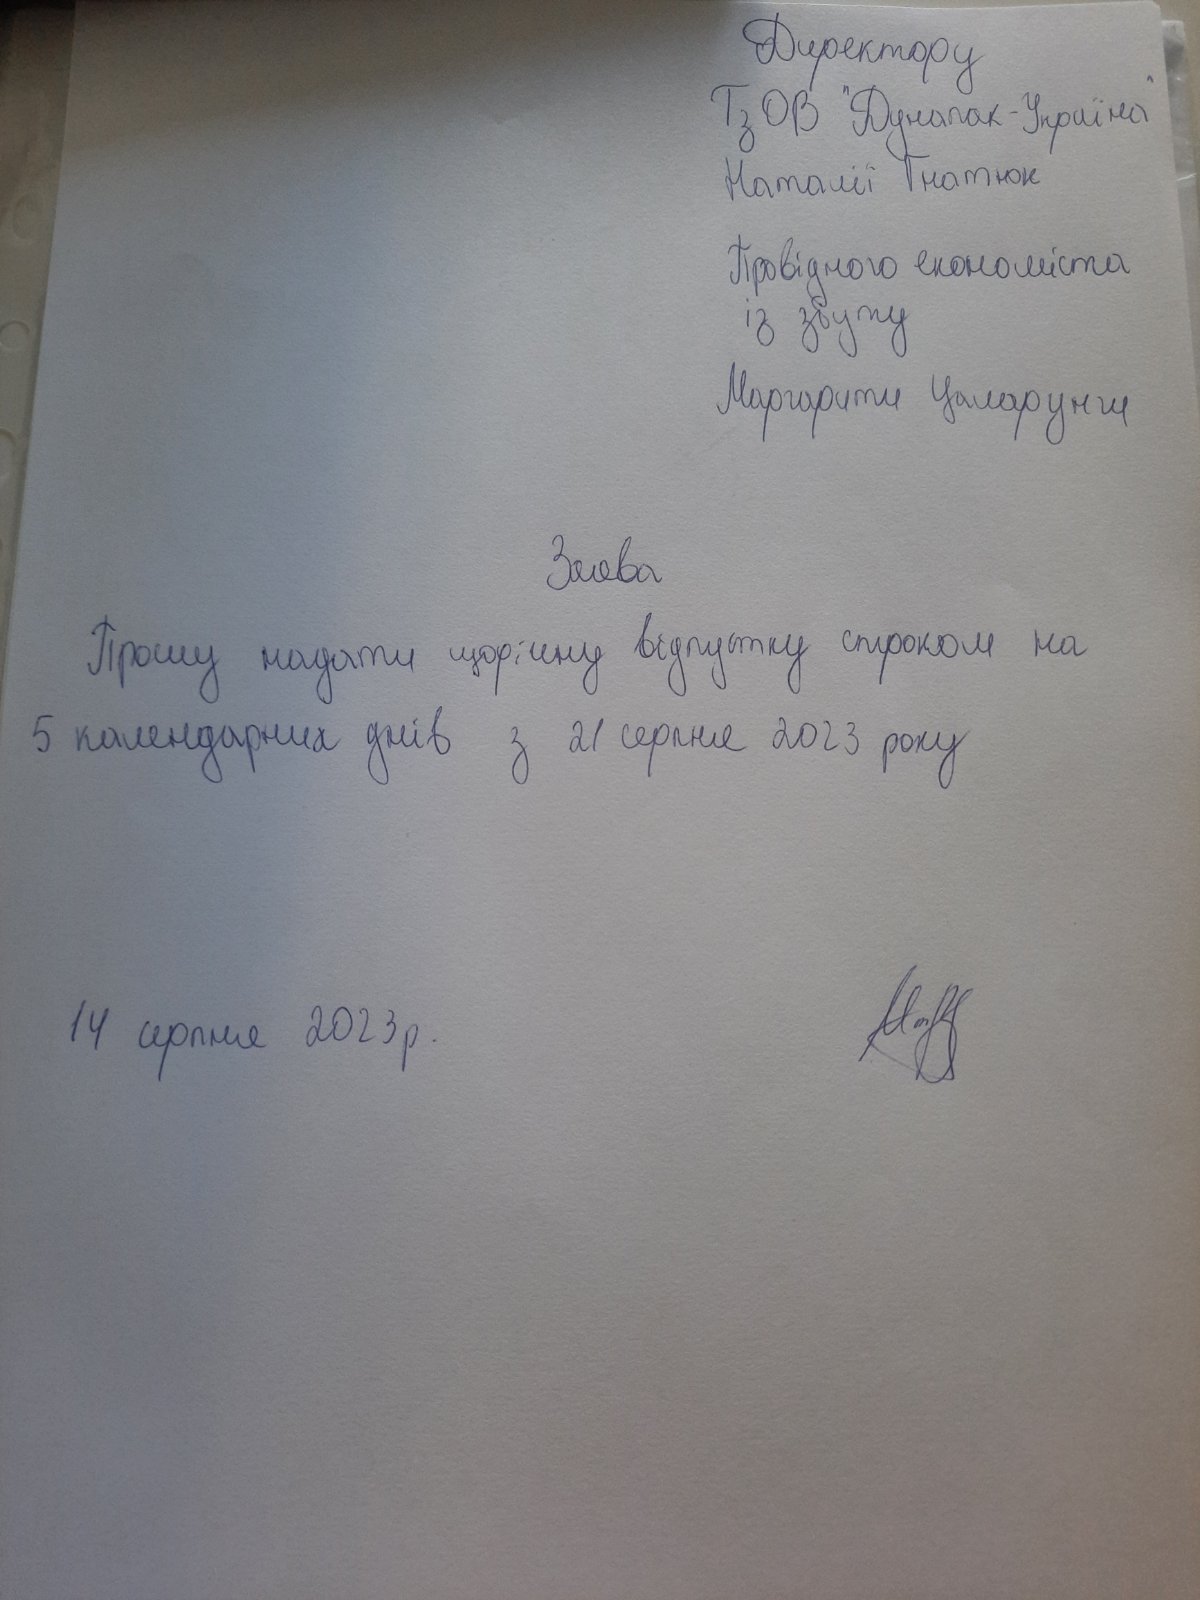 Директору
ТзОВ "Дунапак-Україна"
Наталії Гнатюк
Провідного економіста
із збуту
Маргарити Цаларунги
Заява
Прошу надати щорічну відпустку строком на
5 календарних днів з 21 серпня 2023 року
14 серпня 2023р.